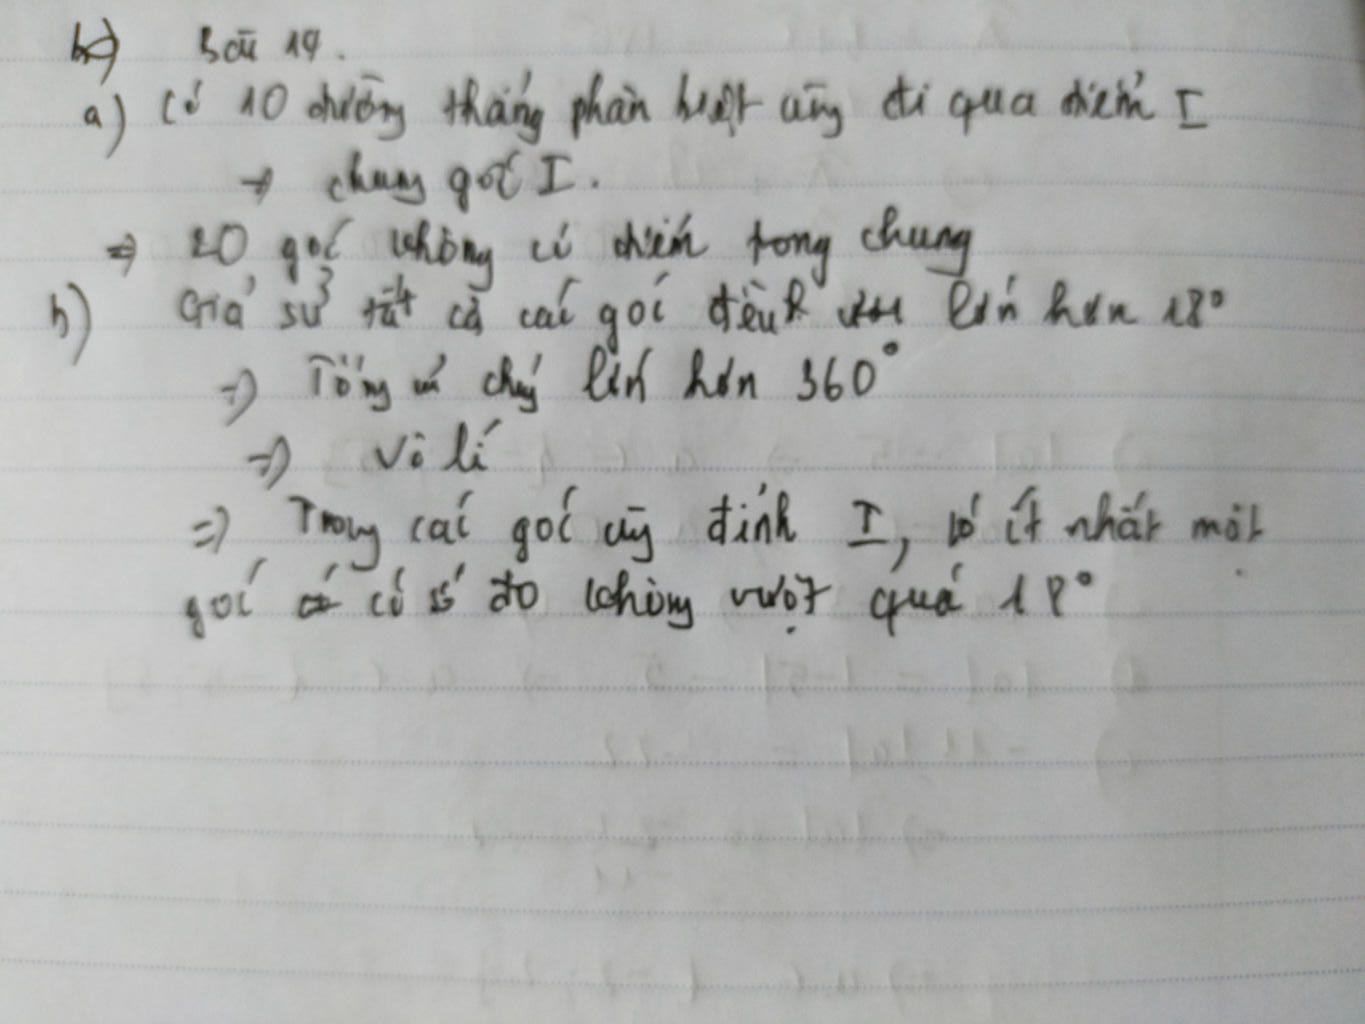 Bài 19.
a) Có 10 đường thẳng phân biệt cùng đi qua điểm I
→ chung gốc I.
⇒ 20 góc không có điểm trong chung
b) Giả sử tất cả các góc đều lớn hơn 18°
⇒ Tổng của chúng lớn hơn 360°
⇒ Vô lí
⇒ Trong các góc cùng đỉnh I, có ít nhất một
góc có số đo không vượt quá 18°